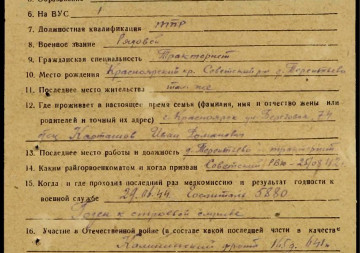 6. На ВУС 1
7. Должностная квалификация
8. Военное звание Рядовой
9. Гражданская специальность Тракторист
10. Место рождения Красноярский кр. Советский р-н д.
11. Последнее место жительства там же
12. Где проживает в настоящее время семья (фамилия, имя и отчество жены или
родителей и точный их адрес) г. Красноярск ул. 74
Иван Романович
13. Последнее место работы и должность тракторист
14. Каким райгорвоенкоматом и когда призван Советский РВК
15. Когда и где проходил последний раз медкомиссию и результат годности к
военной службе 29.06.44 госпиталь 5880
Годен к строевой службе
16. Участие в Отечественной войне (в составе какой последней части и в качестве
Калининский фронт